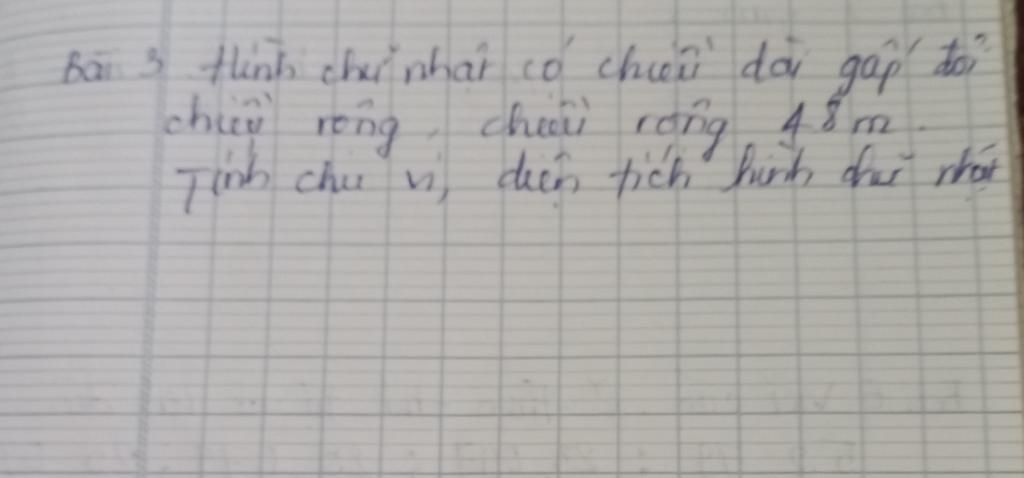 Bài 3 Hình chữ nhật có chiều dài gấp đôi
chiều rộng, chiều rộng 48 m.
Tính chu vi, diện tích hình chữ nhật